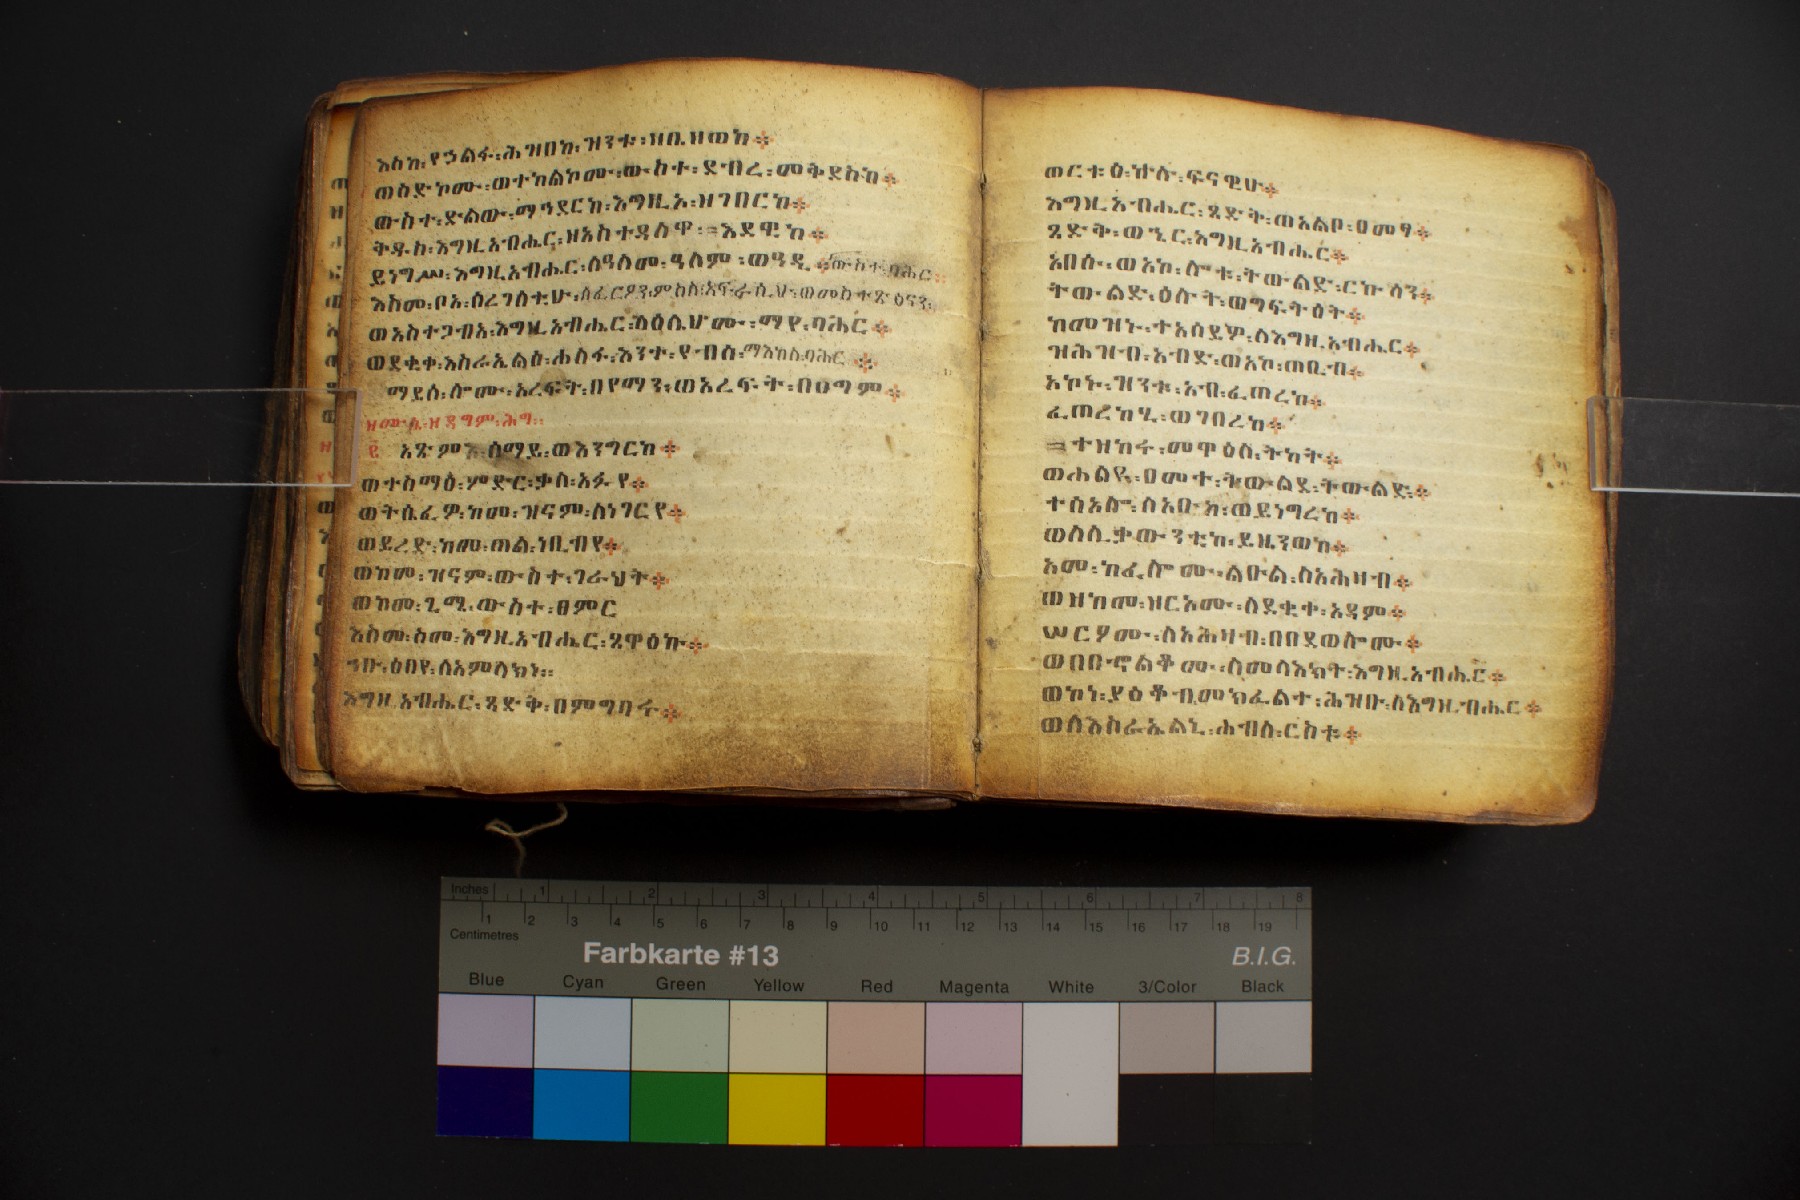 እስከ፡የኃልፋ፡ሕዝበከ፡ዝንቱ፡ዘቤዘወከ፨
ወስድኮሙ፡ወተከልኮሙ፡ውስተ፡ደብረ፡መቅደስከ፨
ውስተ፡ድልው፡ማኅደርከ፡እግዚኦ፡ዘገበርከ፨
ቅዱስ፡እግዚአብሔር፡ዘአስተዳለዋ፡እደዊከ፨
ይነግሥ፡እግዚአብሔር፡ለዓለመ፡ዓለም፡ወዓዲ፡ውስተ፡ባሕር፨
እስመ፡ቦአ፡ሰረገላቲሁ፡ለፈርዖን፡ምስለ፡አፍራሲሁ፡ወመስተጽዕናን፡
ወአስተጋብአ፡እግዚአብሔር፡ላዕሌሆሙ፡ማየ፡ባሕር፨
ወደቂቀ፡እስራኤልሰ፡ሐለፋ፡እንተ፡የብስ፡ማእከለ፡ባሕር፨
ማይሰ፡ሎሙ፡አረፍት፡በየማን፡ወአረፍት፡በፀጋም፨
ዘሙሴ፡ዘዳግም፡ሕግ።
፪ አጽምን፡ሰማይ፡ወእንግርከ፨
ወተስማዕ፡ምድር፡ቃለ፡አፉየ፨
ወትሴፈዎ፡ከመ፡ዝናም፡ለነገርየ፨
ወይረድ፡ከመ፡ጠል፡ነቢብየ፨
ወከመ፡ዝናም፡ውስተ፡ገራህት፨
ወከመ፡ጊሜ፡ውስተ፡ፀምር
እስመ፡ስመ፡እግዚአብሔር፡ጸዋዕኩ፨
ሀቡ፡ዕበየ፡ለአምላክነ።
እግዚአብሔር፡ጻድቅ፡በምግባሩ፨
ወርቱዕ፡ኵሉ፡ፍናዊሁ፨
እግዚአብሔር፡ጻድቅ፡ወአልቦ፡ዐመፃ፨
ጻድቅ፡ወኄር፡እግዚአብሔር፨
አበሱ፡ወአኮ፡ሎቱ፡ትውልድ፡ርኩሳን፨
ትውልድ፡ዕሉት፡ወግፍትዕት፨
ከመዝኑ፡ተአሰይዎ፡ለእግዚአብሔር፨
ዝሕዝብ፡አብድ፡ወአኮ፡ጠቢብ፨
አኮኑ፡ዝንቱ፡አብ፡ፈጠረከ፨
ፈጠረከሂ፡ወገበረከ፨
ተዘከሩ፡መዋዕለ፡ትካት፨
ወሐልዩ፡ዐመተ፡ትውልደ፡ትውልድ፨
ተስአሎ፡ለአቡከ፡ወይነግረከ፨
ወለሊቃውንቲከ፡ይዜንወከ፨
አመ፡ከፈሎሙ፡ልዑል፡ለአሕዛብ፨
ወዘከመ፡ዘርኦሙ፡ለደቂቀ፡አዳም፨
ሠርዖሙ፡ለአሕዛብ፡በበደወሎሙ፨
ወበበ፡ኆልቆሙ፡ለመላእክት፡እግዚአብሔር፨
ወኮነ፡ያዕቆብ፡መክፈልተ፡ሕዝቡ፡ለእግዚብሔር፨
ወለእስራኤልኒ፡ሐብለ፡ርስቱ፨
Inches 1 2 3 4 5 6 7 8
1 2 3 4 5 6 7 8 9 10 11 12 13 14 15 16 17 18 19
Centimetres
Farbkarte #13 B.I.G.
Blue Cyan Green Yellow Red Magenta White 3/Color Black